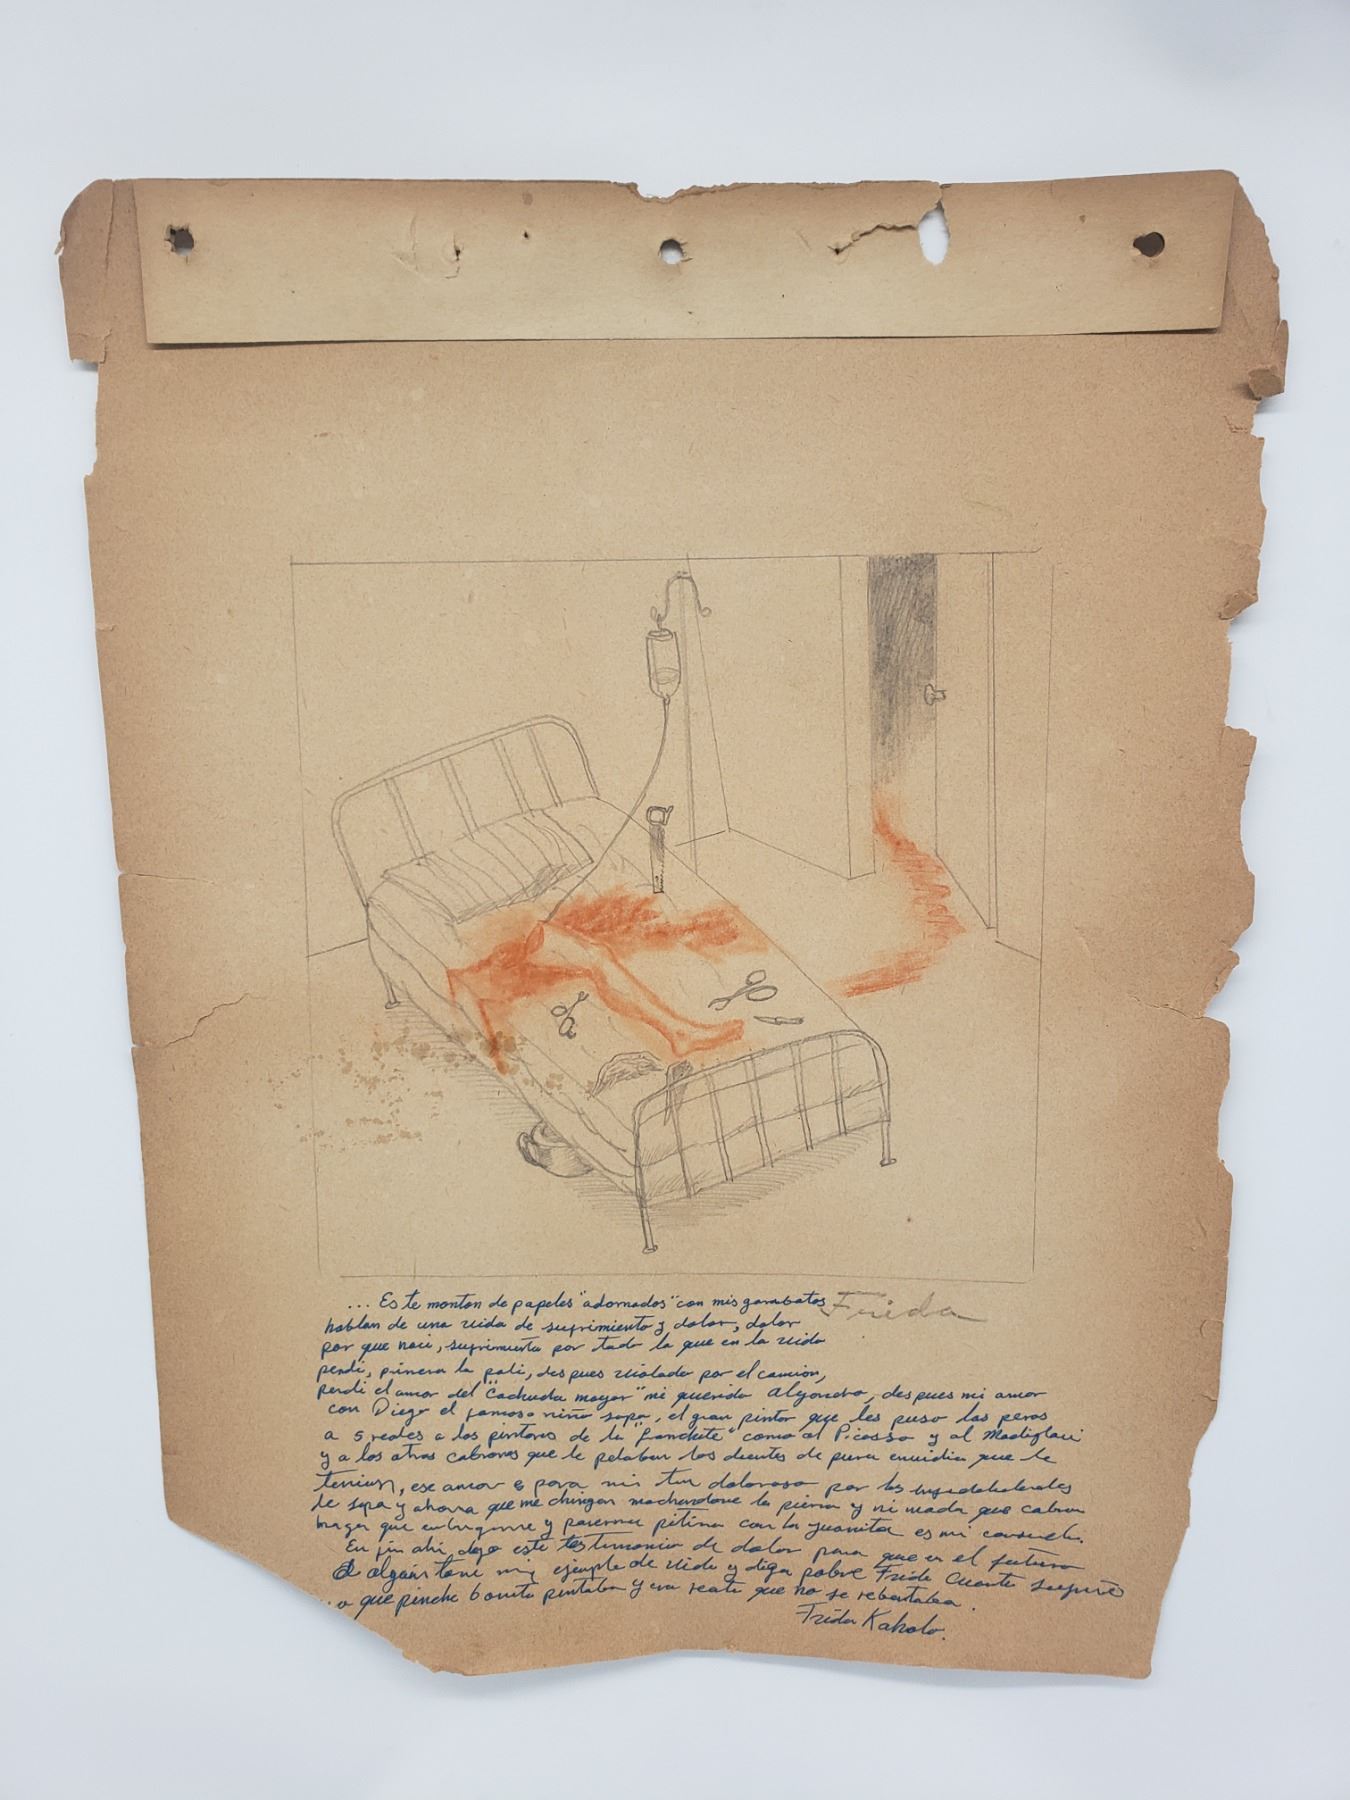 ... Es te monton de papeles "adornados" con mis garabatos
Frida
hablan de una vida de sufrimiento y dolor, dolor
por que naci, sufrimiento por todo lo que en la vida
perdi, primero la poli, des pues violada por el camion,
perdi el amor del "cachucha mayor" mi querido Alejandro, des pues mi amor
con Diego el famoso niño sapo, el gran pintor que les puso las peras
a 5 reales a los pintores de la "franchute" como al Picasso y al Modigliani
y a los otros cabrones que le pelaban los dientes de pura envidia que le
tenian, ese amor para mi tan doloroso por las
de sapo y ahora que me chingan mochandome la pierna y ni nada que cabron
mas que y ponerme pitima con la juanita es mi consuelo.
En fin ahi dejo este testimonio de dolor para que en el futuro
alguien tome mi ejemplo de vida y diga pobre Frida cuanto sufrio
o que pinche bonito pintaba y era reata que no se reventaba.
Frida Kaholo.